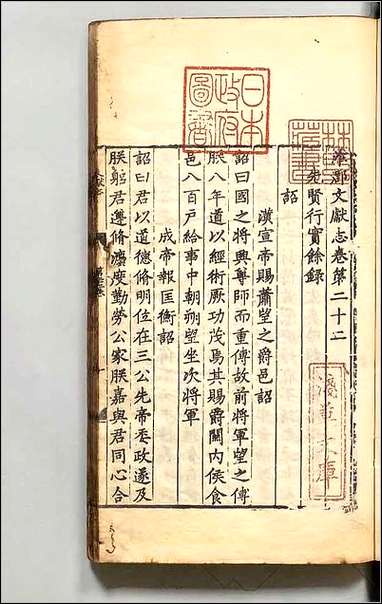 文獻志卷第二十二
先賢行實餘錄
詔
漢宣帝賜蕭望之爵邑詔
詔曰國之將興尊師而重傅故前將軍望之傅
朕八年道以經術厥功茂焉其賜爵關內侯食
邑八百戶給事中朝朔望坐次將軍
成帝報匡衡詔
詔曰君以道德脩明位在三公先帝委政遂及
朕躬君遵脩法度勤勞公家朕嘉與君同心合
日本
政府
圖書
文庫